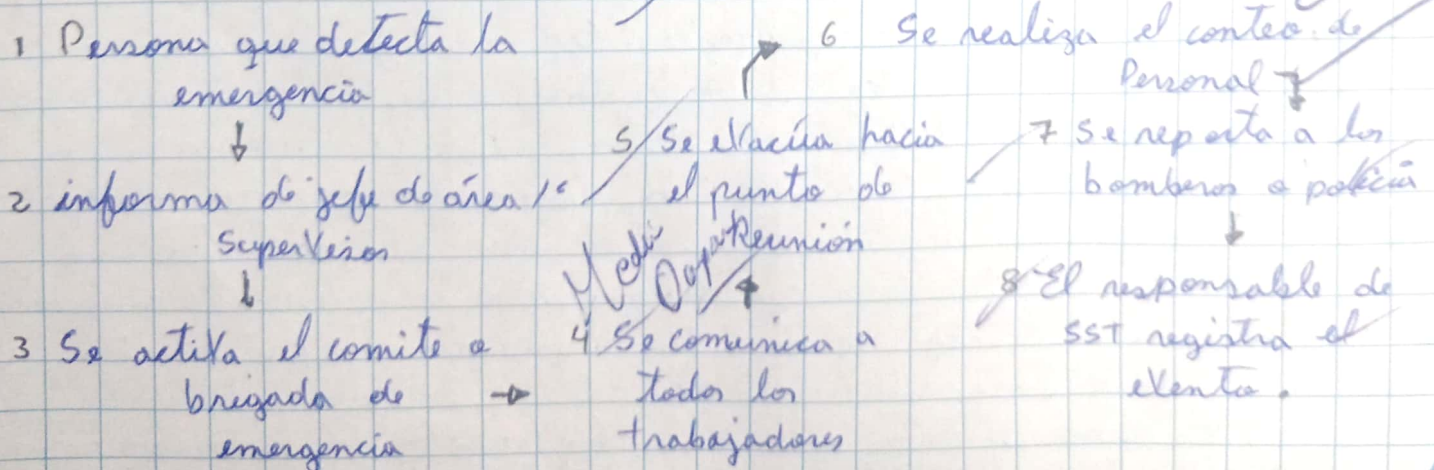 1 Persona que detecta la
emergencia
↓
2 informa de jefe de área /
Supervisor
↓
3 Se activa el comite o
brigada de →
emergencia
4 Se comunica a
todos los
trabajadores
↑
5 Se evacúa hacia
el punto de
Reunión
6 Se realiza el conteo de
Personal
↓
7 Se reporta a los
bomberos o policia
↓
8 El responsable de
SST registra el
evento.